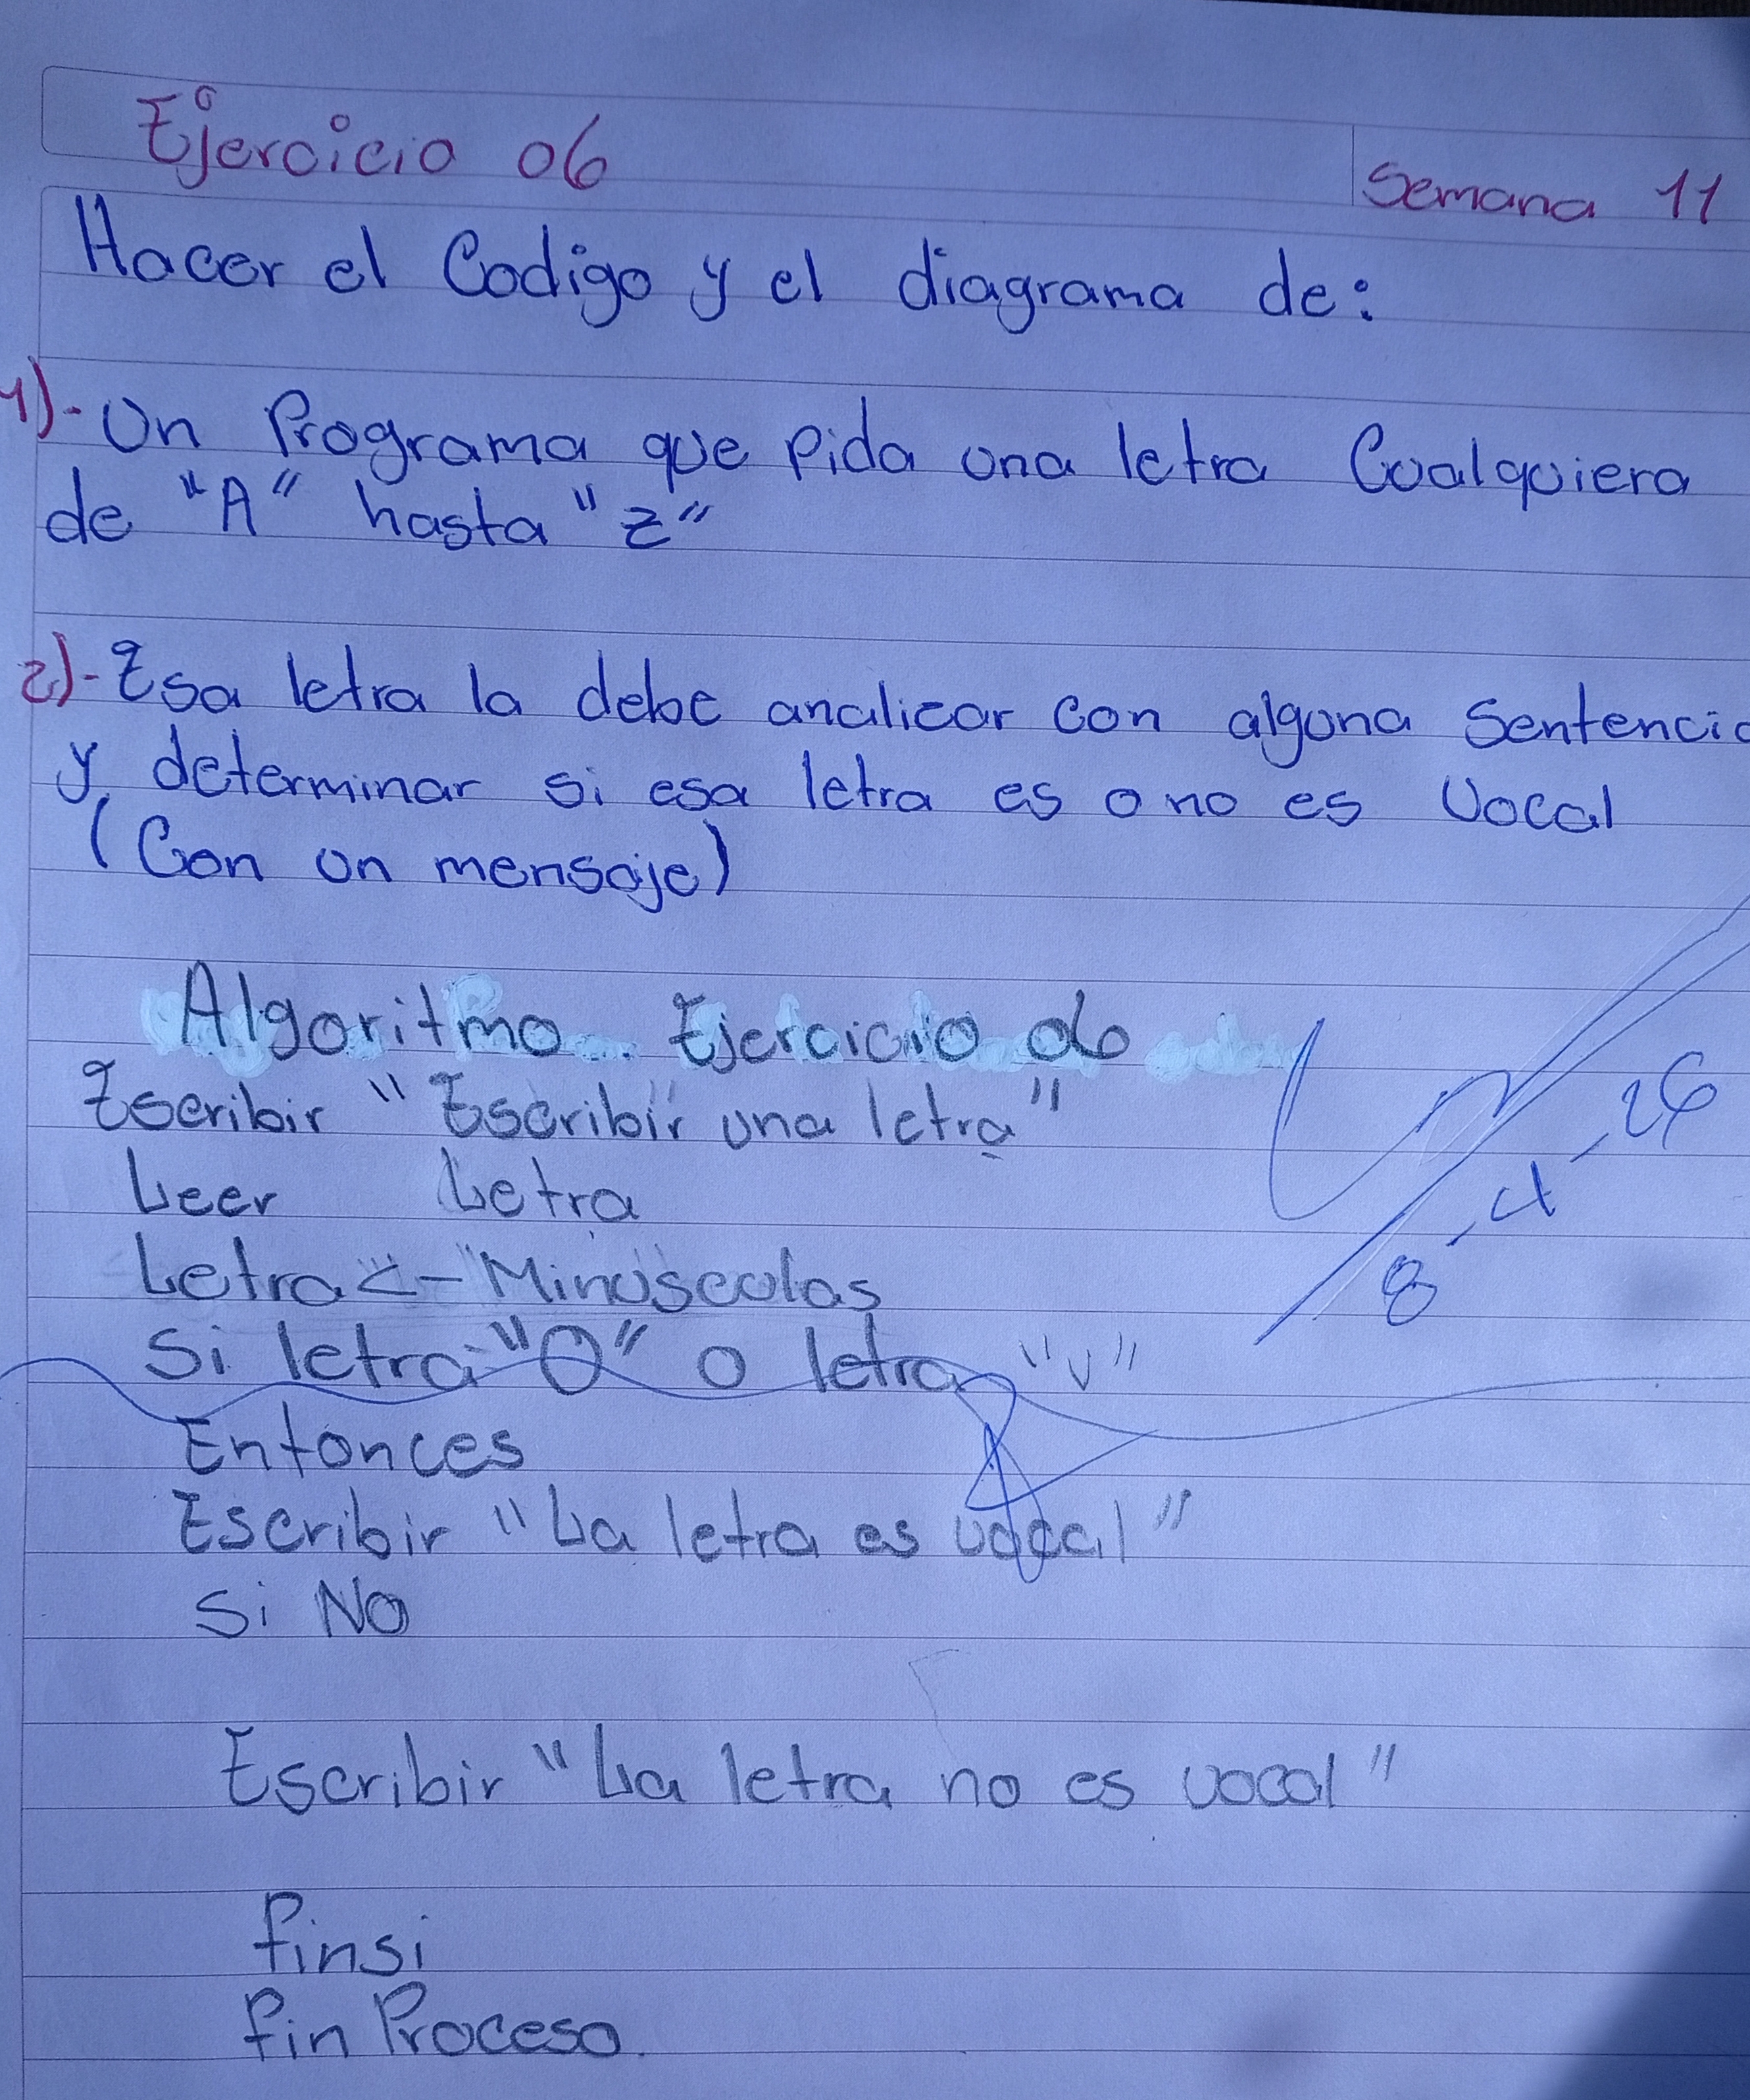 Ejercicio 06
Semana 11
Hacer el Codigo y el diagrama de:
1)- Un Programa que Pida una letra Cualquiera
de "A" hasta "Z"
2)- Esa letra la debe analizar con alguna Sentencia
y determinar si esa letra es o no es Vocal
(Con un mensaje)
Algoritmo Ejercicio 06
Escribir "Escribir una letra"
Leer Letra
Letra <- Minusculas
Si letra "O" o letra "U"
Entonces
Escribir "La letra es vocal"
Si No
Escribir "La letra no es vocal"
finsi
fin Proceso.